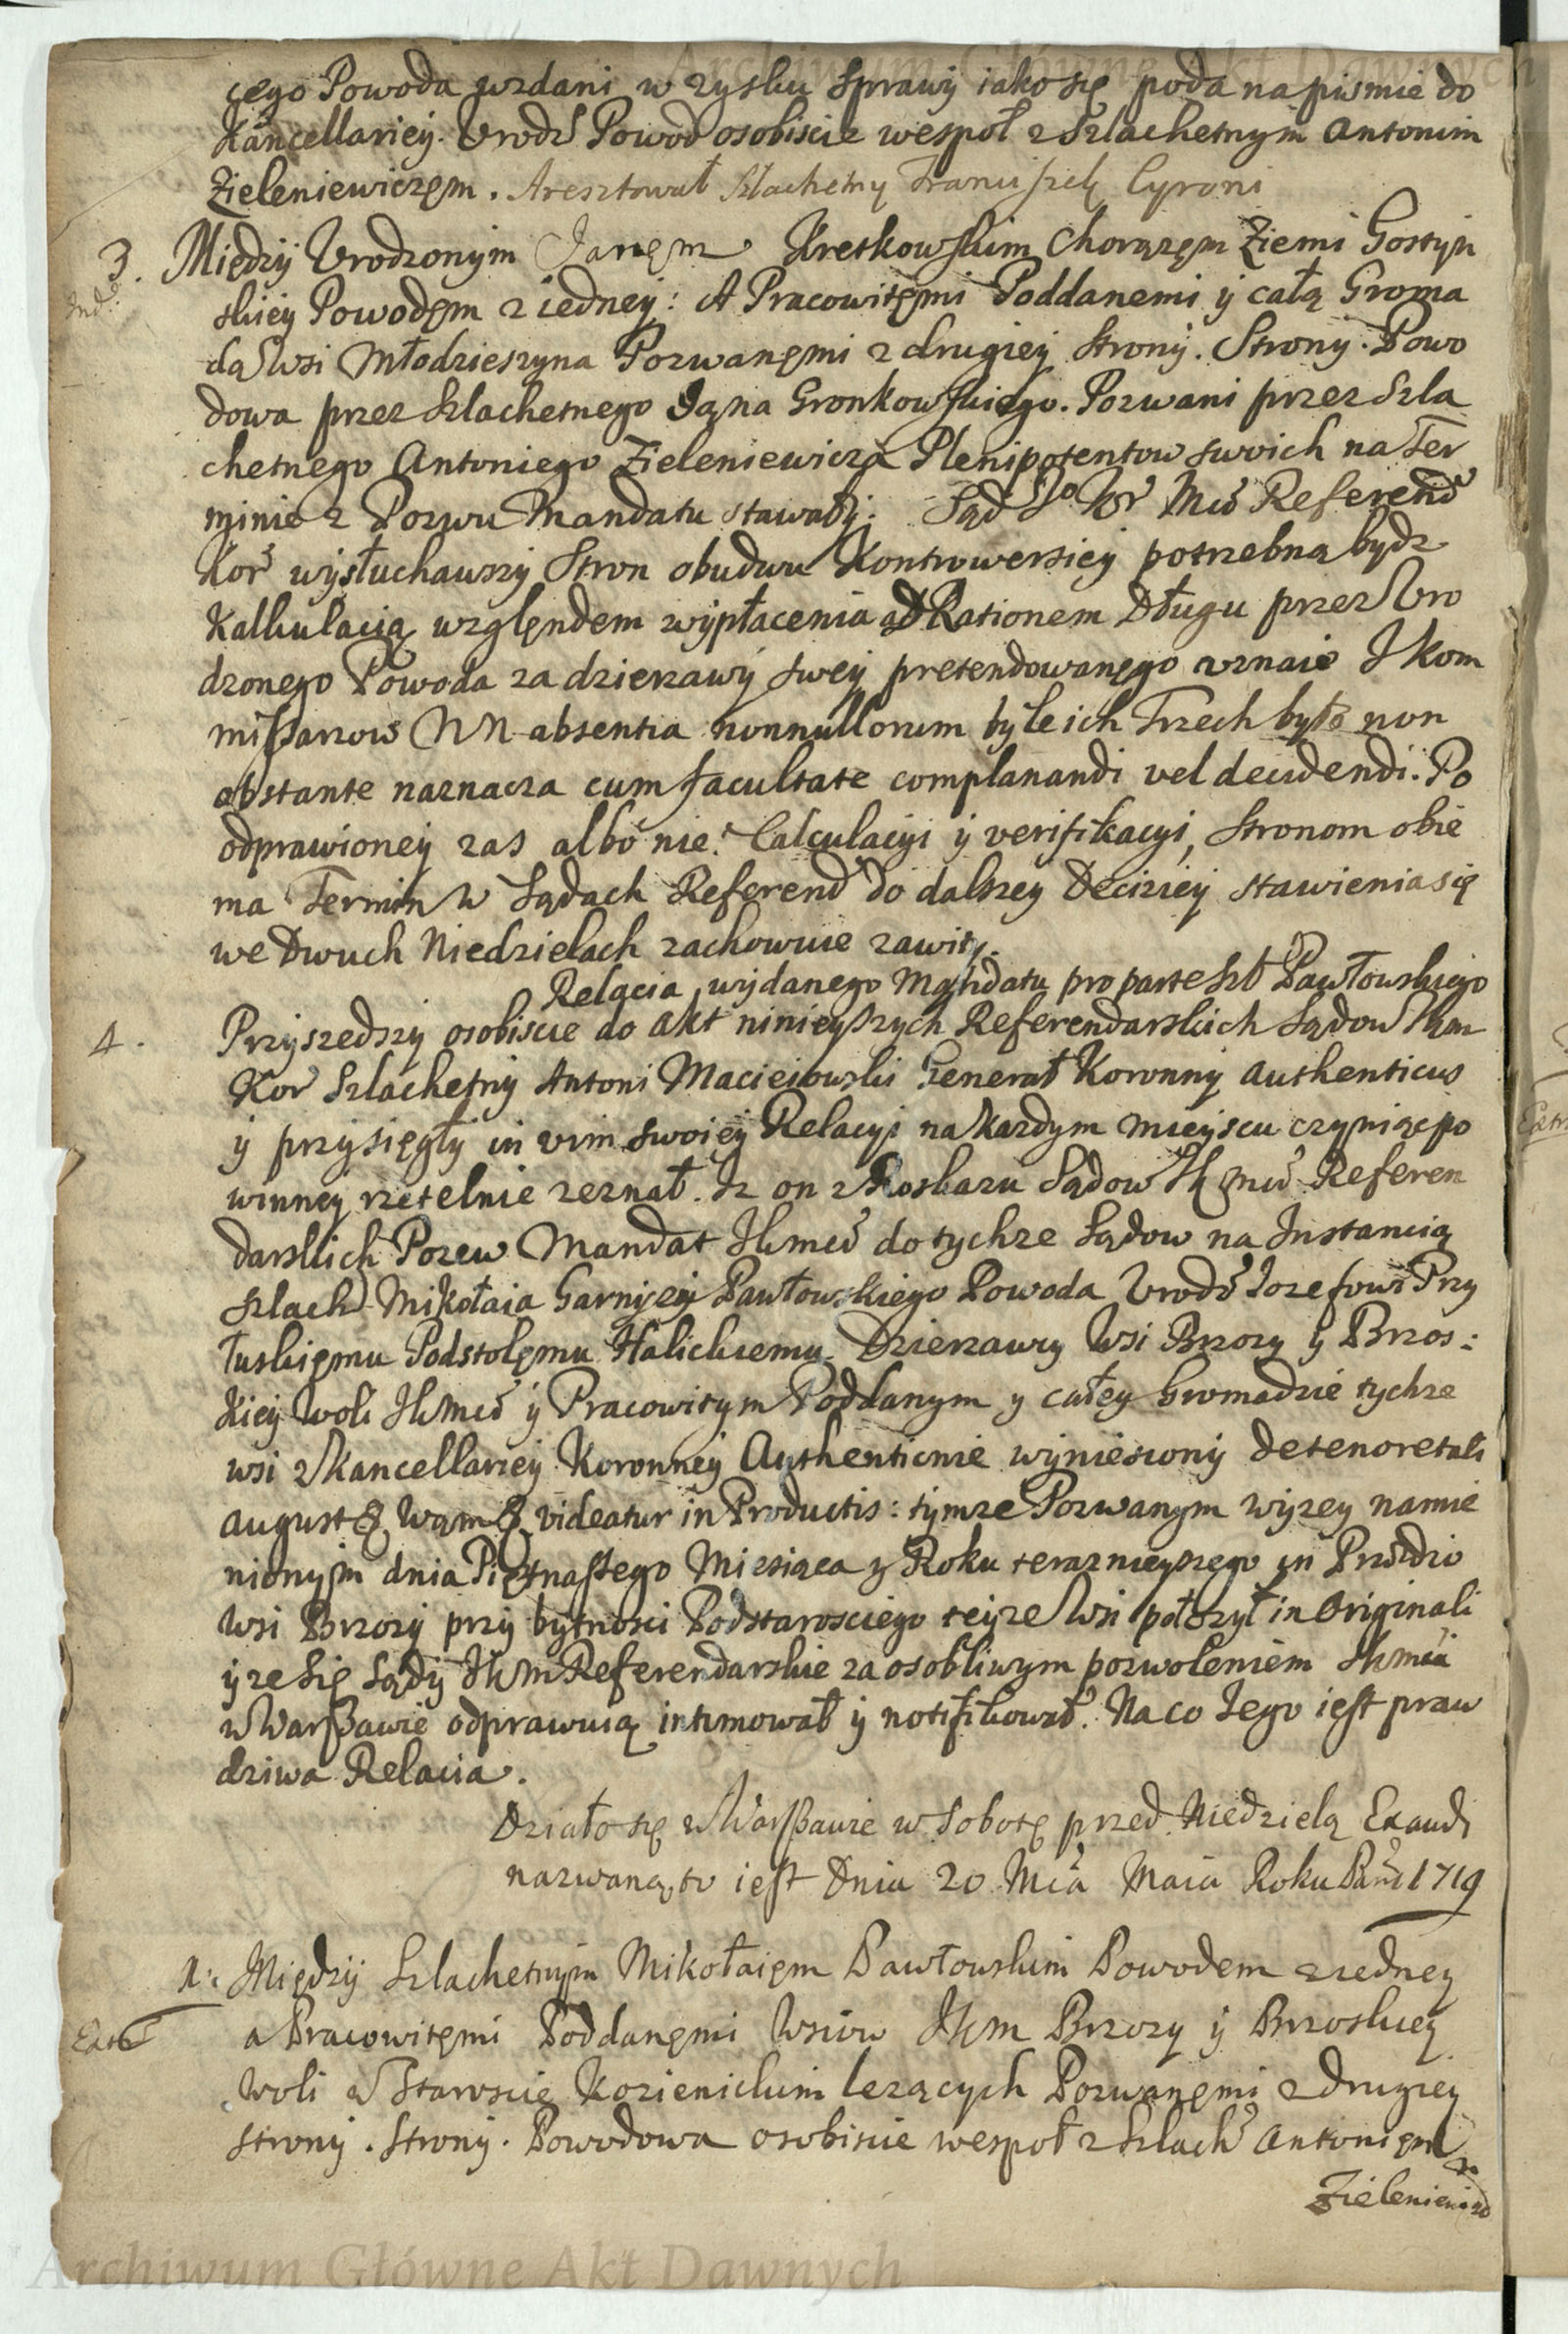 cego Powoda wzdani w zysku Sprawy iako się poda na pismie do
Kancellariey. Urodz Powod osobiscie wespoł z Szlachetnym Antonim
Zieleniewiczem. Aresztował Szlachetny Franciszek Cyroni
3. Między Urodzonym Janem Kretkowskim Chorązem Ziemi Gostyn
skiey Powodem z iedney: A Pracowitemi Poddanemi y całą Groma
dą Wsi Młodzieszyna Pozwanemi z drugiey Strony. Strony Powo
dowa przez Szlachetnego Jana Gronkowskiego. Pozwani przez Szla
chetnego Antoniego Zieleniewicza Plenipotentow swoich na Ter
minie z Pozwu Mandatu stawały. Sąd Mci Referend
Kor wysłuchawszy Stron obudwu Kontrowersiey potrzebną bydz
Kalkulacią względem wypłacenia ad Rationem Długu przez Uro
dzonego Powoda za dzierzawy swey pretendowanego uznaie J kom
missarzow NN absentia nonnullorum byle ich Trzech było non
obstante naznacza cum facultate complanandi vel decidendi. Po
odprawioney zas albo nie Calculacyi y verifikacyi, Stronom obie
ma Termin w Sądach Referend do dalszey Deciziey stawienia się
we Dwuch Niedzielach zachowuie zawity.
Relacia wydanego Mandatu pro parte Szl Pawłowskiego
4. Przyszedszy osobiscie do Akt ninieyszych Referendarskich Sądow
Kor Szlachetny Antoni Macieiowski Generał Koronny Authenticus
y przysięgły in vim swoiey Relacyi na kazdym mieyscu czyniąc po
winney rzetelnie zeznał. Iz on z Roskazu Sądow JKMci Referen
darskich Pozew Mandat JKmci do tychze Sądow na Instancią
Szlach Mikołaia Garnysey Pawłowskiego Powoda Urodz Iozefowi Przy
łuskiemu Podstolemu Halickiemu Dzierzawcy Wsi Brzozy y Brzos:
kiey Woli JKmci y Pracowitym Poddanym y całey Gromadzie tychze
wsi z Kancellariey Koronney Authenticnie wyniesiony de tenore tali
August & Wam & videatur in Productis: tymze Pozwanym wyzey namie
nionym dnia Piętnastego Miesiąca y Roku teraznieyszego in Prædio
Wsi Brzozy przy bytnosci Podstarosciego teyze Wsi połozył in Originali
y ze się Sądy JKM Referendarskie za osobliwym pozwoleniem JKmci
w Warszawie odprawuią intimował y notifikował. Na co Jego iest praw
dziwa Relacia.
Działo się w Warszawie w Sobotę przed Niedzielą Exaudi
nazwaną, to iest Dnia 20 Mca Maia Roku Pań 1719
1. Między Szlachetnym Mikołaiem Pawłowskim Powodem z iedney
a Pracowitemi Poddanemi Wsiów JKm Brzozy y Brzoskiey
Woli w Starostie Kozienickim lezących Pozwanemi z drugiey
strony. Strony. Powodowa osobiscie wespoł z Szlach Antoniem
Zieleniewicz
Archiwum Główne Akt Dawnych